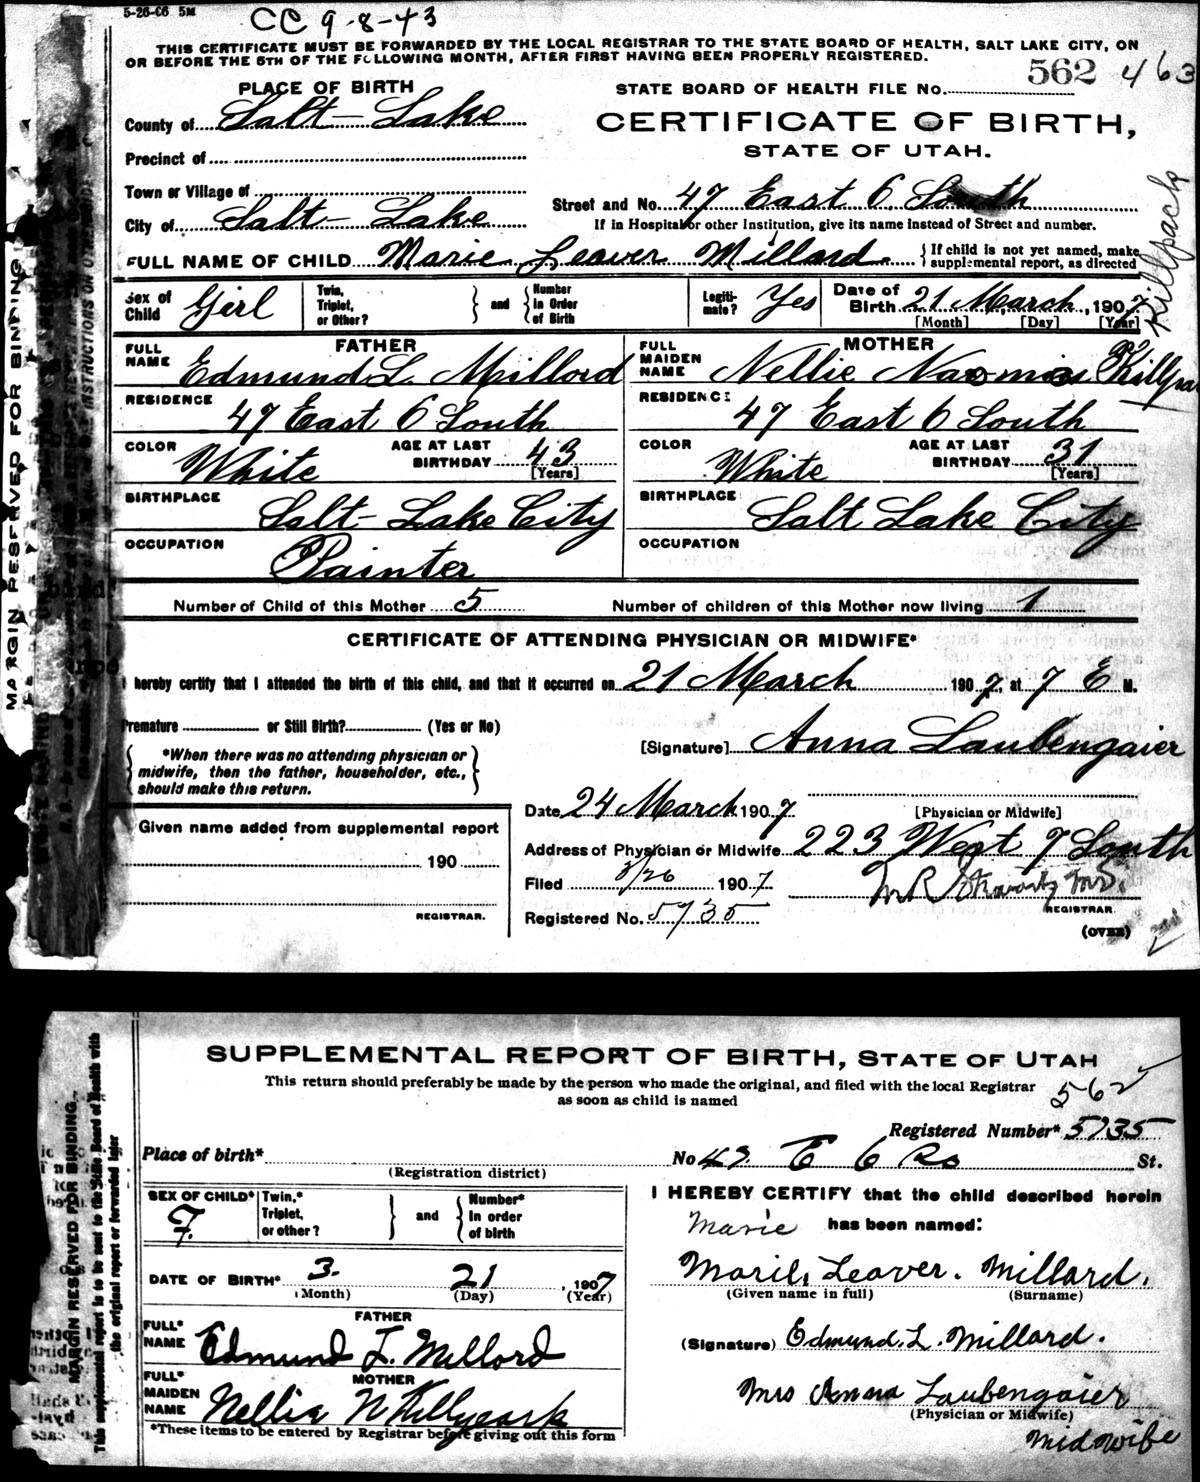 5-26-06 5M
CC 9-8-43
THIS CERTIFICATE MUST BE FORWARDED BY THE LOCAL REGISTRAR TO THE STATE BOARD OF HEALTH, SALT LAKE CITY, ON
OR BEFORE THE 5TH OF THE FOLLOWING MONTH, AFTER FIRST HAVING BEEN PROPERLY REGISTERED.
562 463
PLACE OF BIRTH
STATE BOARD OF HEALTH FILE No.
County of Salt-Lake
CERTIFICATE OF BIRTH,
Precinct of
STATE OF UTAH.
Town or Village of
Street and No. 47 East 6 South
City of Salt-Lake
If in Hospital or other Institution, give its name instead of Street and number.
FULL NAME OF CHILD Marie Leaver Millard
If child is not yet named, make
supplemental report, as directed
Killpack
Sex of Child Girl
Twin, Triplet, or Other?
and
Number in Order of Birth
Legiti-mate? Yes
Date of Birth 21 March, 1907
[Month] [Day] [Year]
FATHER
FULL NAME Edmund L. Millord
RESIDENCE
47 East 6 South
COLOR White
AGE AT LAST BIRTHDAY 43
[Years]
BIRTHPLACE
Salt-Lake City
OCCUPATION
Painter
MOTHER
FULL MAIDEN NAME Nellie Naomi
RESIDENCE
47 East 6 South
COLOR White
AGE AT LAST BIRTHDAY 31
[Years]
BIRTHPLACE
Salt Lake City
OCCUPATION
Number of Child of this Mother 5
Number of children of this Mother now living 1
CERTIFICATE OF ATTENDING PHYSICIAN OR MIDWIFE*
I hereby certify that I attended the birth of this child, and that it occurred on 21 March 1907, at 7 E M.
Premature or Still Birth? (Yes or No)
*When there was no attending physician or
midwife, then the father, householder, etc.,
should make this return.
[Signature] Anna Laubengaier
Date 24 March 1907
[Physician or Midwife]
Given name added from supplemental report
190
REGISTRAR.
Address of Physician or Midwife 223 West 7 South
Filed 3/26 1907
M R Stewart M.D.
REGISTRAR
Registered No. 5735
(OVER)
MARGIN RESERVED FOR BINDING
SUPPLEMENTAL REPORT OF BIRTH, STATE OF UTAH
This return should preferably be made by the person who made the original, and filed with the local Registrar
as soon as child is named
562
Registered Number* 5735
Place of birth*
(Registration district)
No 47 E 6 So St.
SEX OF CHILD* F.
Twin,* Triplet, or other?
and
Number* In order of birth
I HEREBY CERTIFY that the child described herein
Marie has been named:
DATE OF BIRTH* 3. 21, 1907
(Month) (Day) (Year)
Marie Leaver. Millard.
(Given name in full) (Surname)
FATHER
FULL* NAME Edmund L. Millord
(Signature) Edmund. L. Millard.
MOTHER
FULL* MAIDEN NAME Nellie N
Mrs Anna Laubengaier
(Physician or Midwife)
Midwife
*These items to be entered by Registrar before giving out this form
MARGIN RESERVED FOR BINDING.
This supplemental report is to be sent to the State Board of Health with
the original report or forwarded later